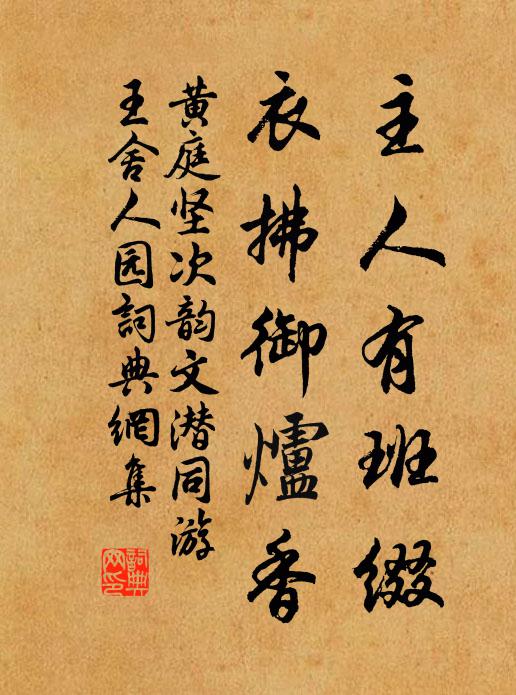 主人有班缀
衣拂御爐香
黄庭坚次韵文潜同游
王舍人园詞典網集